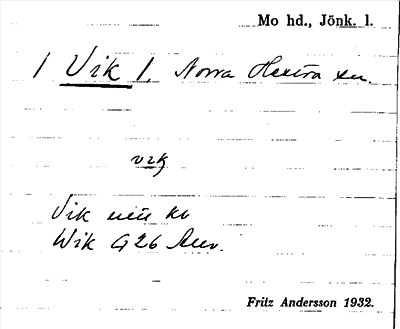 Mo hd., Jönk. l.
1 Vik 1. Norra Hestra sn.
vik
Vik
Wik G 26
Fritz Andersson 1932.